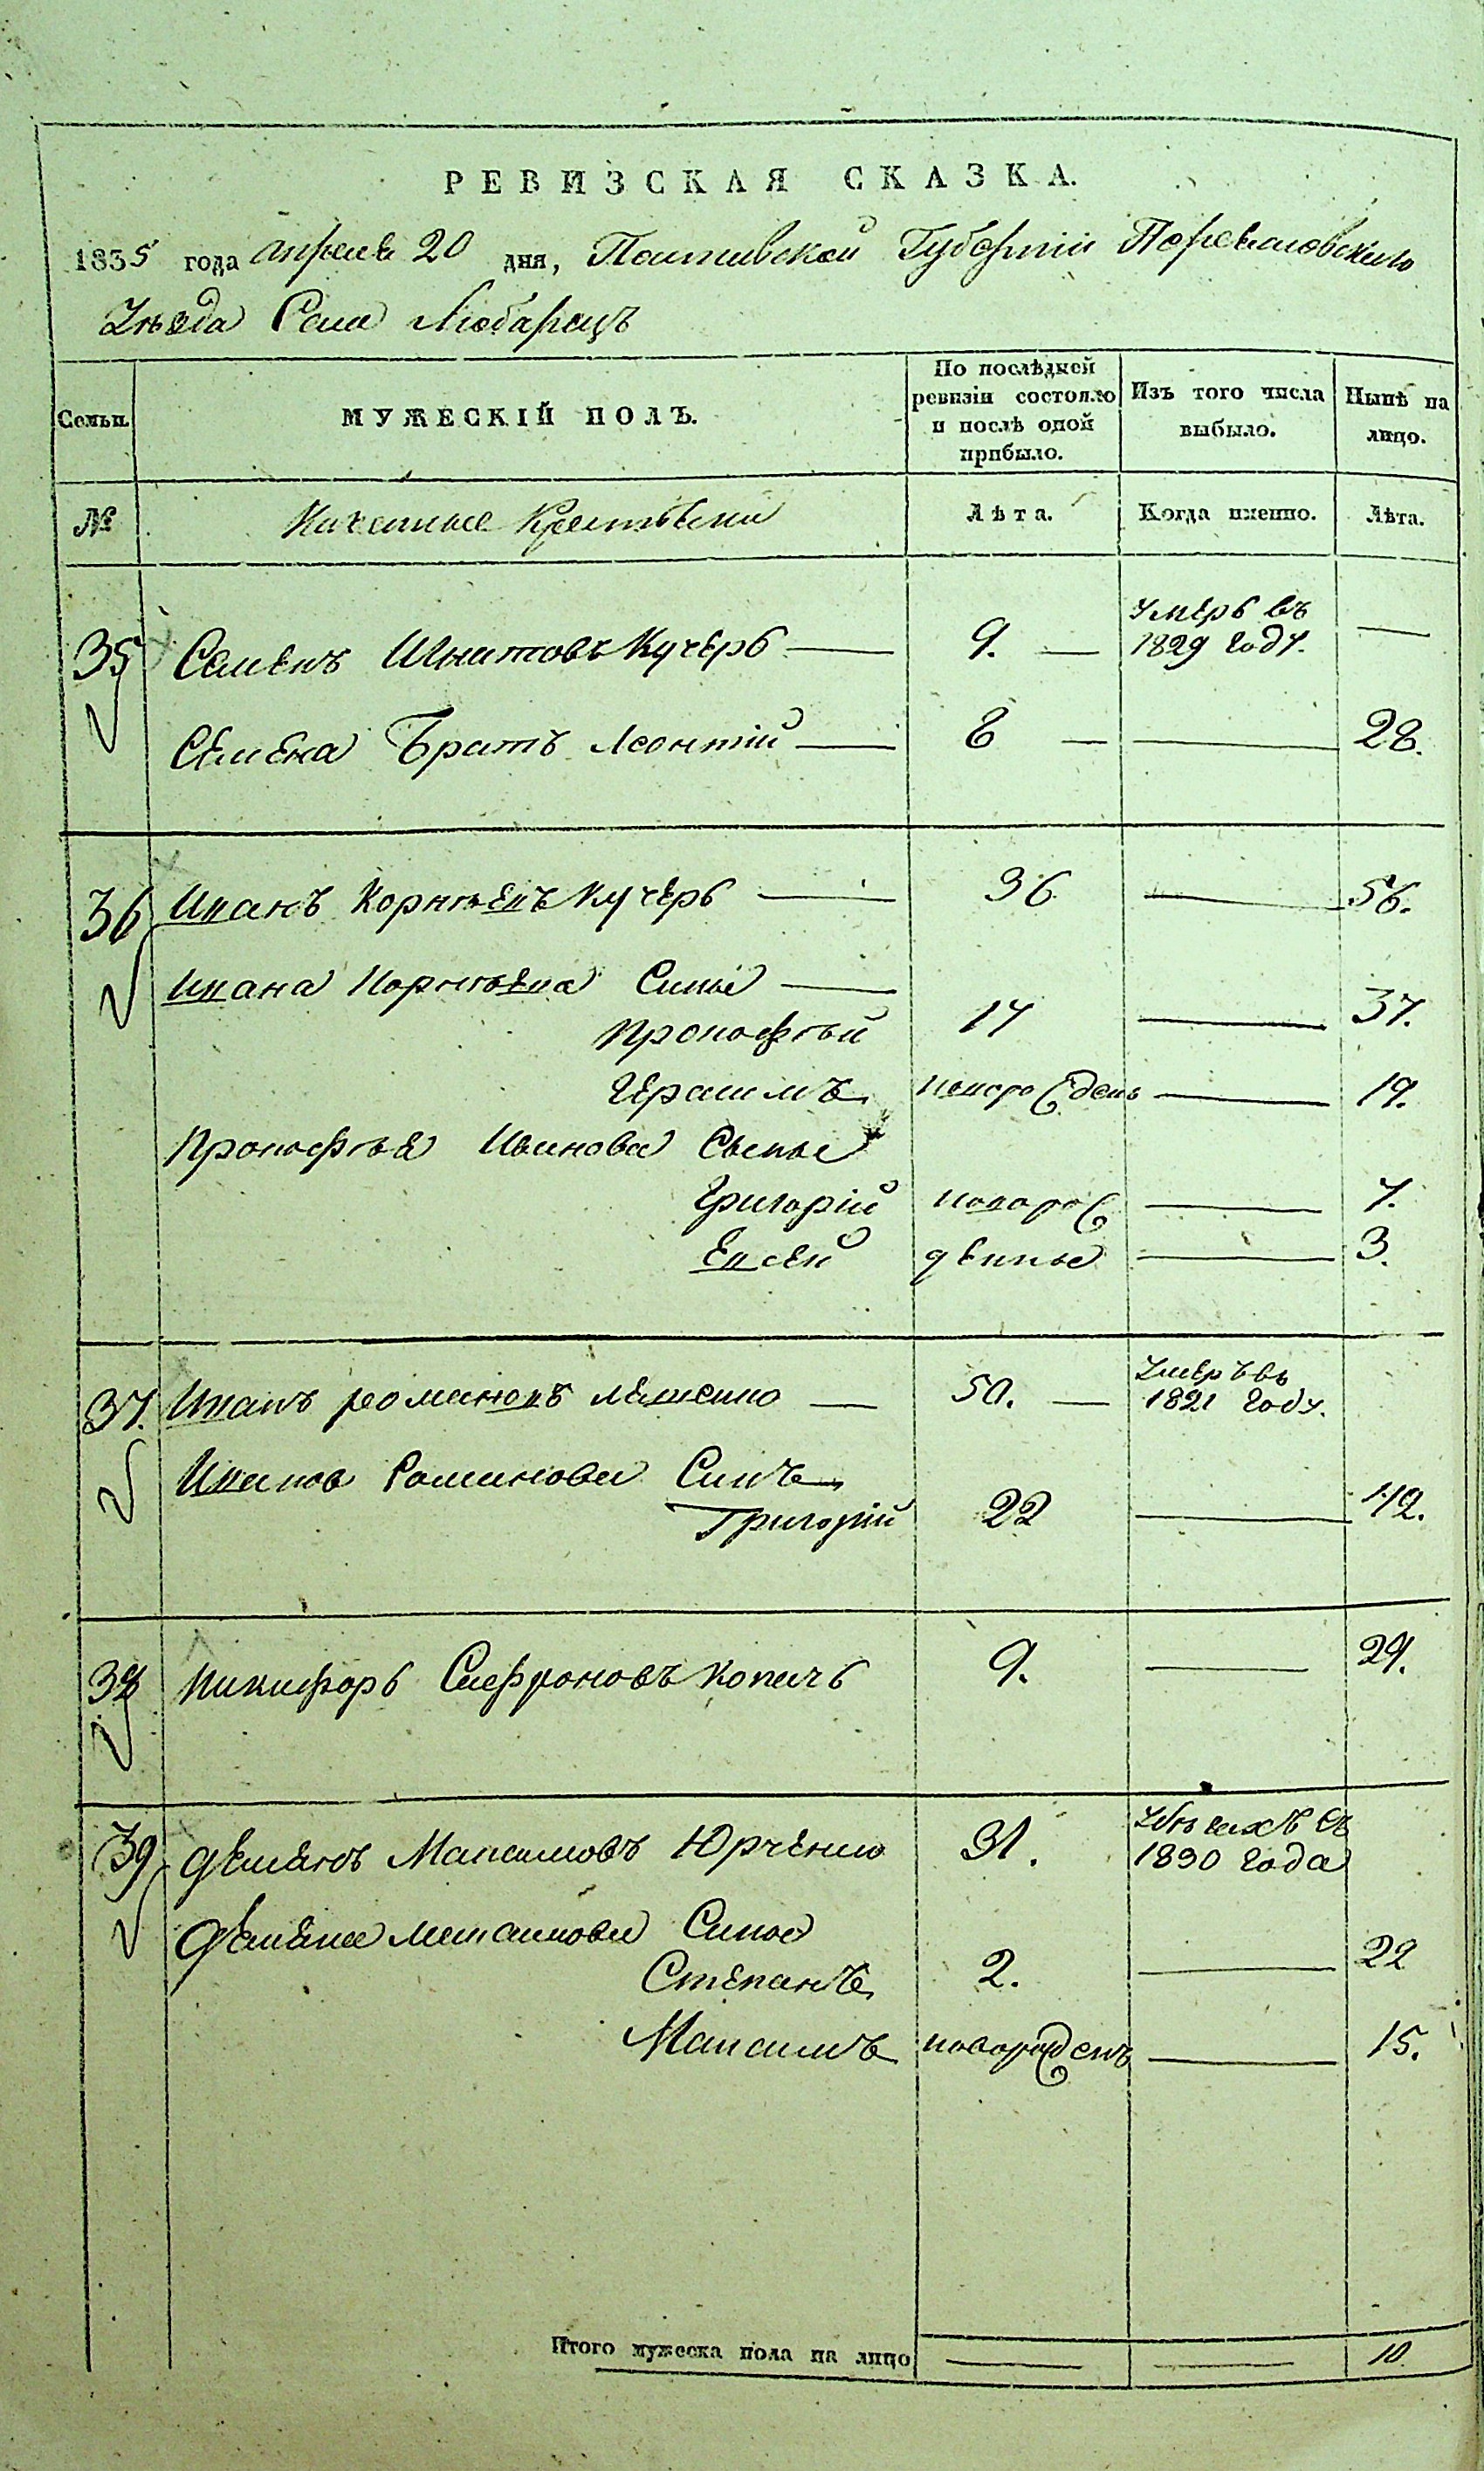 РЕВИЗСКАЯ СКАЗКА.
1835 года апреля 20 дня, Полтавской Губернии Переяславскаго
Уѣзда Села Любарецъ
Семьи.
МУЖЕСКІЙ ПОЛЪ.
По послѣдней ревизіи состояло и послѣ оной прибыло.
Изъ того числа выбыло.
Нынѣ на лицо.
№ Казенные Крестьяни Лѣта. Когда именно. Лѣта.
35 Семенъ Игнатовъ Кучеръ — 9. — умеръ въ 1829 году. —
Семена Братъ Леонтій — 8 — — 28.
36 Иванъ Корнѣевъ Кучеръ — 36 — 56.
Ивана Корнѣева Сины —
Прокофѣй 17 — 37.
Герасимъ новорожденъ — 19.
Прокофѣя Иванова Сыны
Григорій новорож — 7.
Евсей денные — 3.
37. Иванъ романовъ Лященко — 50. — умеръ въ 1821 году.
Ивана Романова Синъ
Григорій 22 — 42.
38 Никифоръ Сафроновъ Копачъ 9. — 29.
39 Демянъ Максимовъ Юрченко 31. 1830 года
Демяна Максимова Сины
Степанъ 2. — 22
Максимъ новорожденъ — 15.
Итого мужеска пола на лицо — — 10